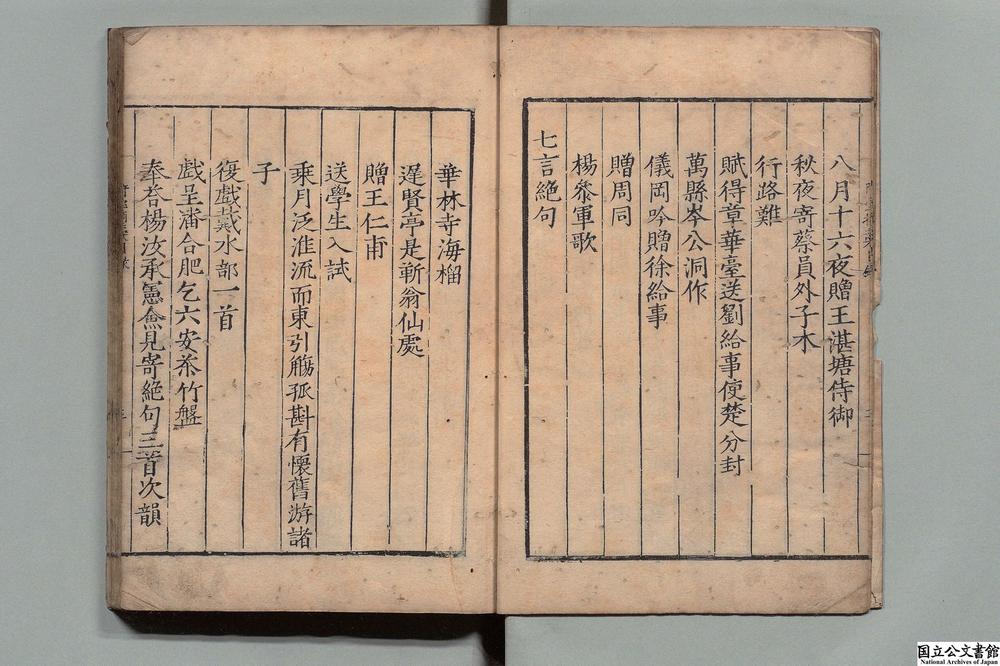 八月十六夜贈王湛塘侍御
秋夜寄蔡員外子木
行路難
賦得章華臺送劉給事使楚分封
萬縣岑公洞作
儀岡吟贈徐給事
贈周同
楊叅軍歌
七言絶句
華林寺海榴
遲賢亭是蘄翁仙處
贈王仁甫
送學生入試
乘月泛淮流而東引觴孤斟有懷舊游諸
子
復戲戴水部一首
戲呈潘合肥乞六安茶竹盤
奉荅楊汝承憲僉見寄絕句三首次韻
国立公文書館
National Archives of Japan